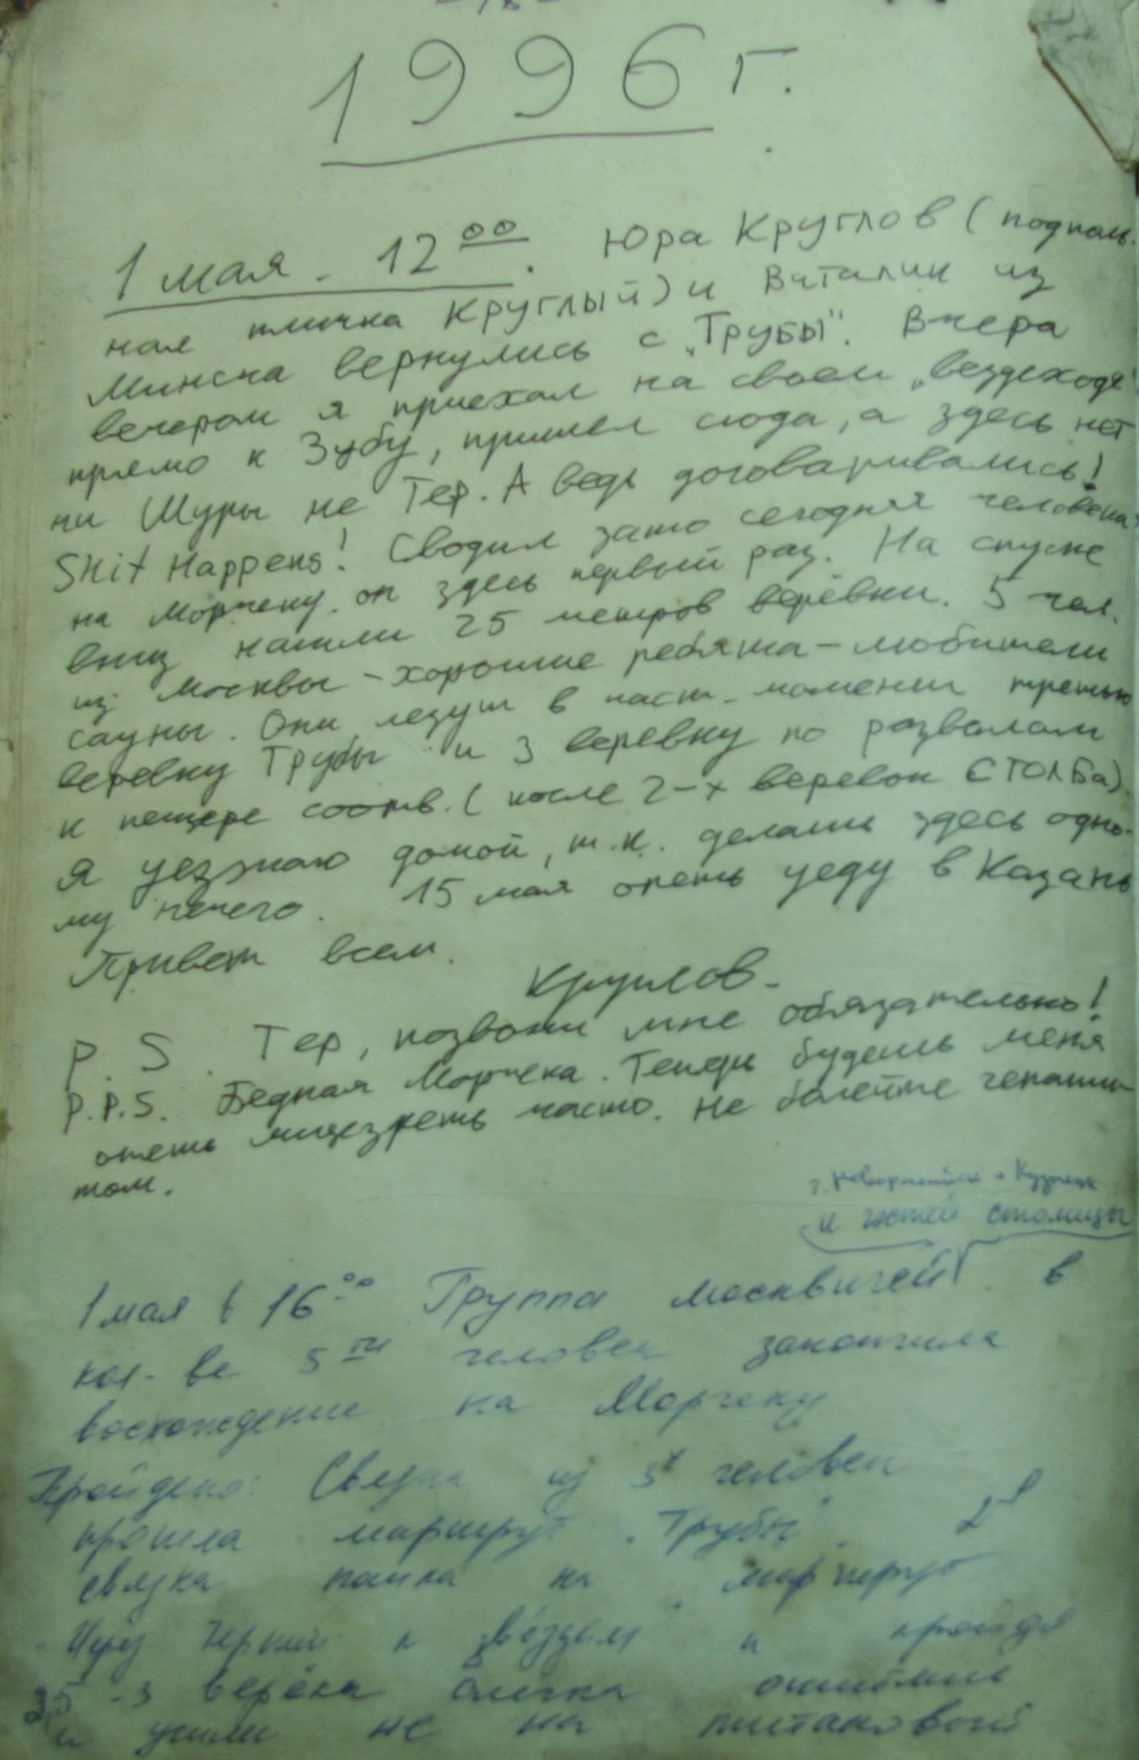 1996 г.
1 мая. 12 00. Юра Круглов (подполь-
ная кличка Круглый) и Виталик из
Минска вернулись с „Трубы". Вчера
вечером я приехал на своем „вездеходе"
прямо к Зубу, пришел сюда, а здесь нет
ни Шуры не Тер. А ведь договаривались!
Shit Happens! Сводил зато сегодня человека
на Морчеку. он здесь первый раз. На спуске
вниз нашли 25 метров верёвки. 5 чел.
из Москвы - хорошие ребята - любители
сауны. Они лезут в наст. момент третью
веревку Трубы и 3 веревку по развалам
к пещере соотв. (после 2-х веревок СТОЛБа).
Я уезжаю домой, т.к. делать здесь одно-
му нечего. 15 мая опять уеду в Казань
Привет всем.
Круглов.
P. S. Тер, позвони мне обязательно!
P.P.S. Бедная Морчека. Теперь будешь меня
опять лицезреть часто. Не болейте гепати-
том.
и гостей столицы
1 мая в 16 00 Группа москвичей в
кол-ве 5ти человек закончила
восхождение на Морчеку
Пройдено: Связка из 3х человек
прошла маршрут „Трубы". 2я
связка пошла на маршрут
Через Тернии к звёздам и пройдя
3 верёвки слегка ошиблись
и ушли не на